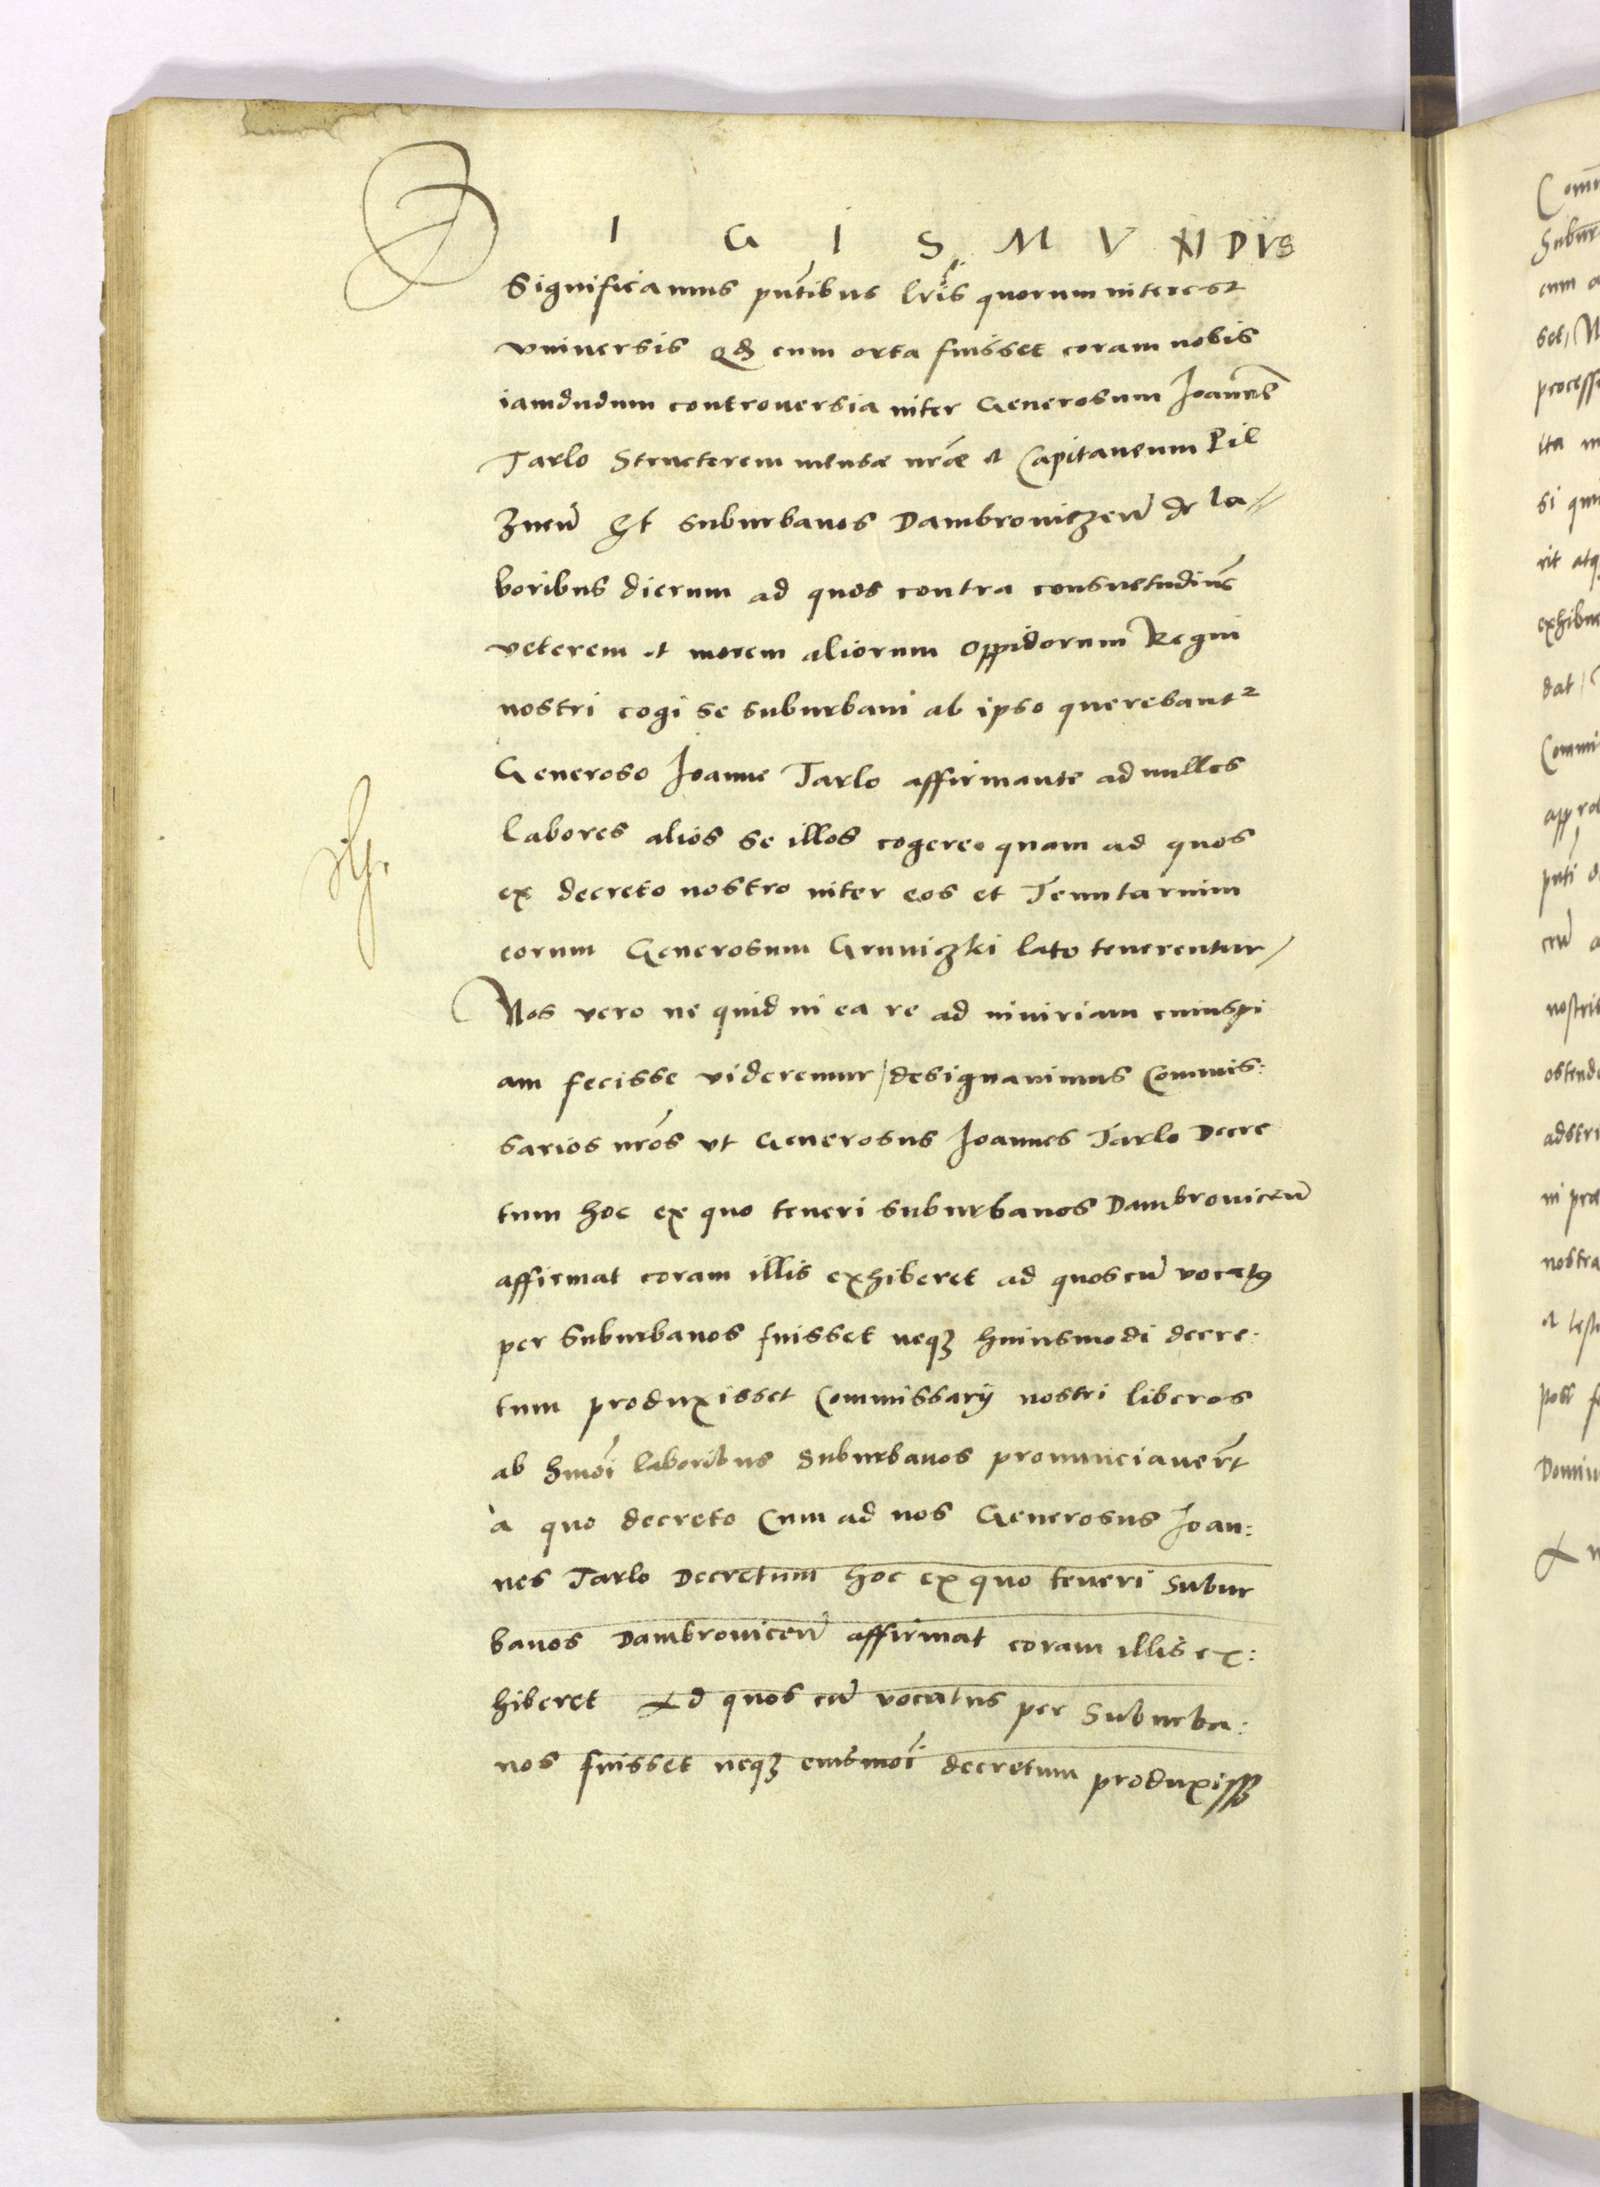 SIGISMVNDVS
Significamus pntibus lris quorum interest
vniuersis Qd cum orta fuisset coram nobis
iamdudum controuersia inter Generosum Joannem
Tarlo Structorem mensæ nræ et Capitaneum Pil
znen Et suburbanos Dambrouiczen de la
boribus dierum ad quos contra consuetudinē
veterem et morem aliorum oppidorum Regni
nostri cogi se suburbani ab ipso querebant
Generoso Joanne Tarlo affirmante ad nullos
labores alios se illos cogere quam ad quos
ex decreto nostro inter eos et Tenutarium
eorum Generosum Gruniczki lato tenerentur /
Nos vero ne quid in ea re ad iniuriam cuiuspi
am fecisse videremur / designauimus Commis:
sarios nros vt Generosus Joannes Tarlo Decre
tum hoc ex quo teneri suburbanos Dambrouicen
affirmat coram illis exhiberet ad quos cū vocatus
per suburbanos fuisset neqz huiusmodi decre.
tum produxisset Commissarij nostri liberos
ab hmoi laboribus suburbanos pronunciauert
à quo decreto Cum ad nos Generosus Joan:
nes Tarlo Decretum hoc ex quo teneri subur
banos Dambrouicen affirmat coram illis ex:
hiberet Ad quos cū vocatus per suburba:
nos fuisset neqz eiusmoi decretum produxissz
Com
Subur
cum a
set /
process
ita
si qui
rit atq
exhibu
dat /
Commi
approb
pnti
nostris
ostend
adstri
in præ
nostra
et
Domin